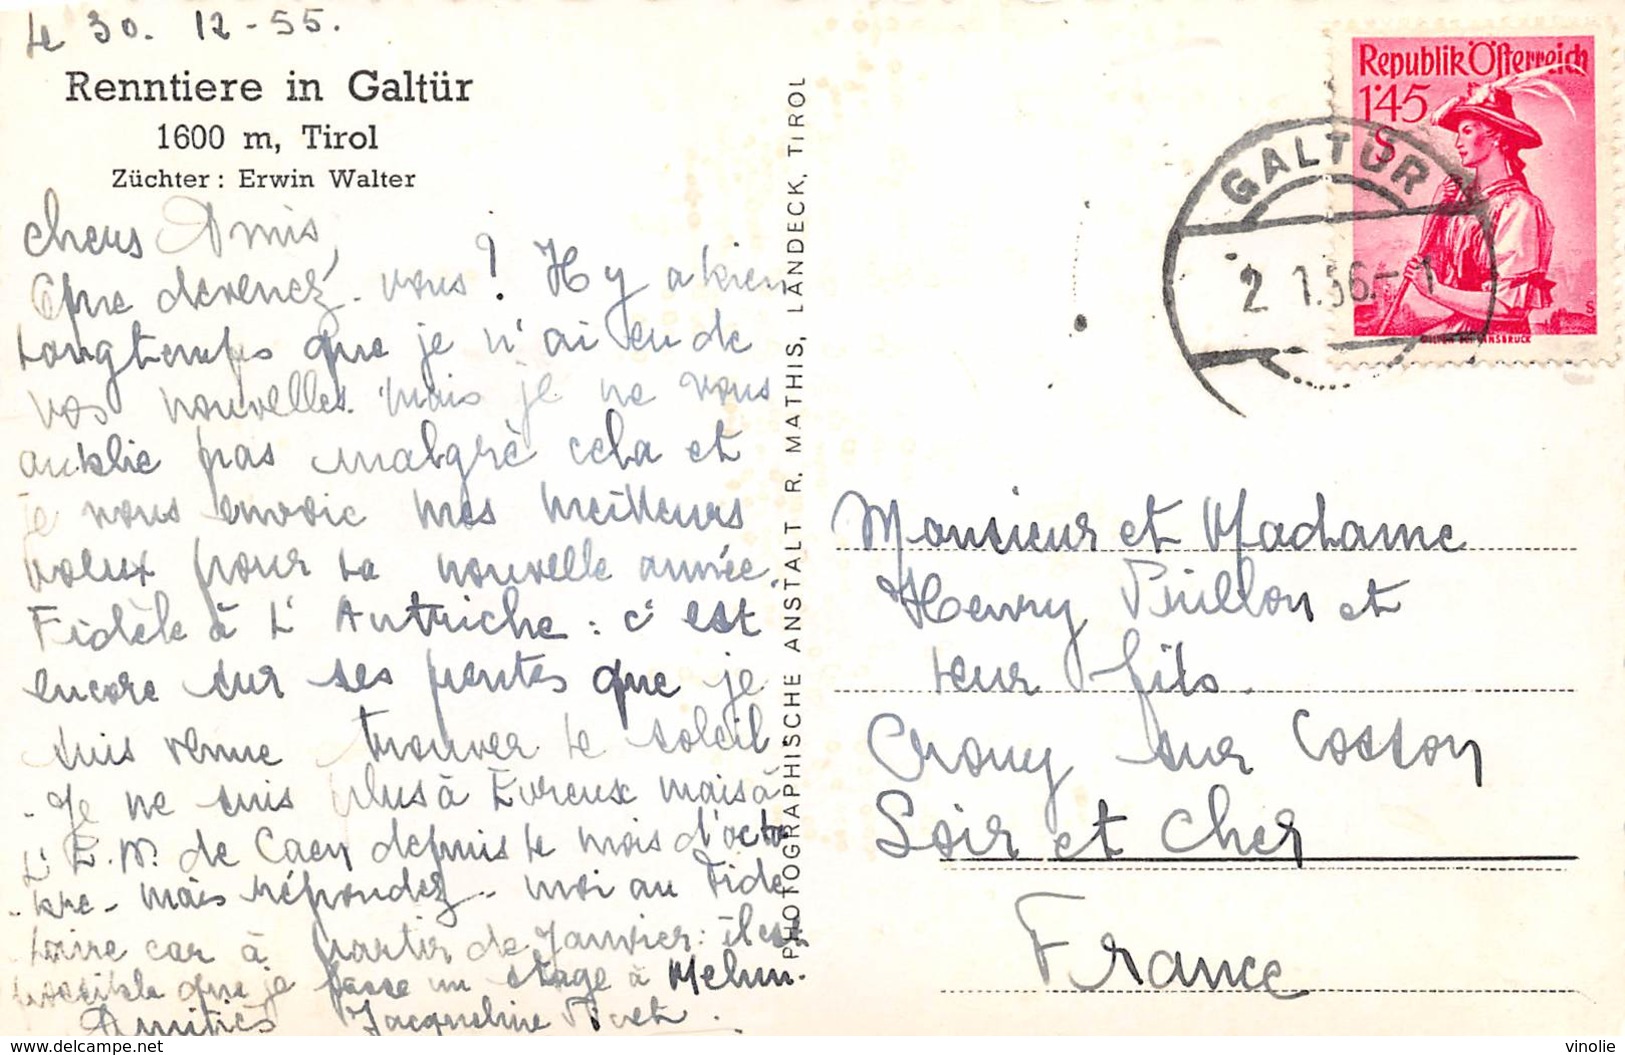 le 30. 12-55.
Renntiere in Galtür
1600 m, Tirol
Züchter : Erwin Walter
chers Amis,
Que devenez-vous ? Il y a bien
longtemps que je n'ai eu de
vos nouvelles mais je ne vous
oublie pas malgré cela et
je vous envoie mes meilleurs
voeux pour la nouvelle année.
Fidèle à l'Autriche : c'est
encore sur ses pentes que je
suis venue trouver le soleil
- Je ne suis plus à Évreux mais à
l'E.N. de Caen depuis le mois d'octo
- bre - mais répondez-moi au Fide
laire car à partir de Janvier : il est
possible que je fasse un stage à Melun.
Amitiés Jacqueline
PHOTOGRAPHISCHE ANSTALT R. MATHIS, LANDECK, TIROL
Republik Österreich
1'45
S
GALTÜR
2. 1.56.-1
Monsieur et Madame
Henry et
leur fils.
Crouy sur Cosson
Loir et Cher
France
delcampe.net
vinolie